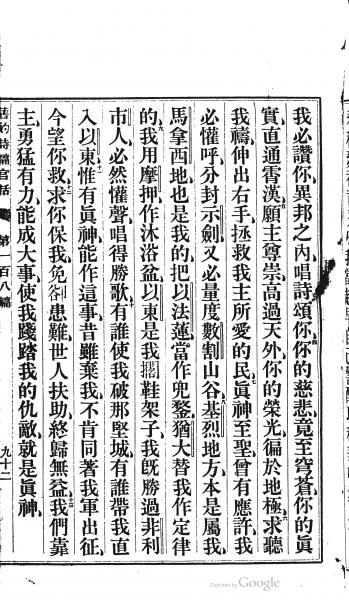 我必讚你異邦之內唱詩頌你你的慈悲竟至穹蒼你的眞
實直通霄漢願主尊崇高過天外你的榮光徧於地極求聽
我禱伸出右手拯救我主所愛的民眞神至聖曾有應許我
必懽呼分封示劍又必量度數割山谷基烈地方本是屬我
馬拿西地也是我的把以法蓮當作兜鍪猶大替我作定律
的我用摩押作沐浴盆以東是我擱鞋架子我既勝過非利
市人必然懽聲唱得勝歌有誰使我破那堅城有誰帶我直
入以東惟有眞神能作這事昔雖棄我不肯同著我軍出征
今望你救求你保我免卻患難世人扶助終歸無益我們靠
主勇猛有力能成大事使我踐踏我的仇敵就是眞神
舊約詩篇官話 第一百八篇 九十二
Digitized by Google